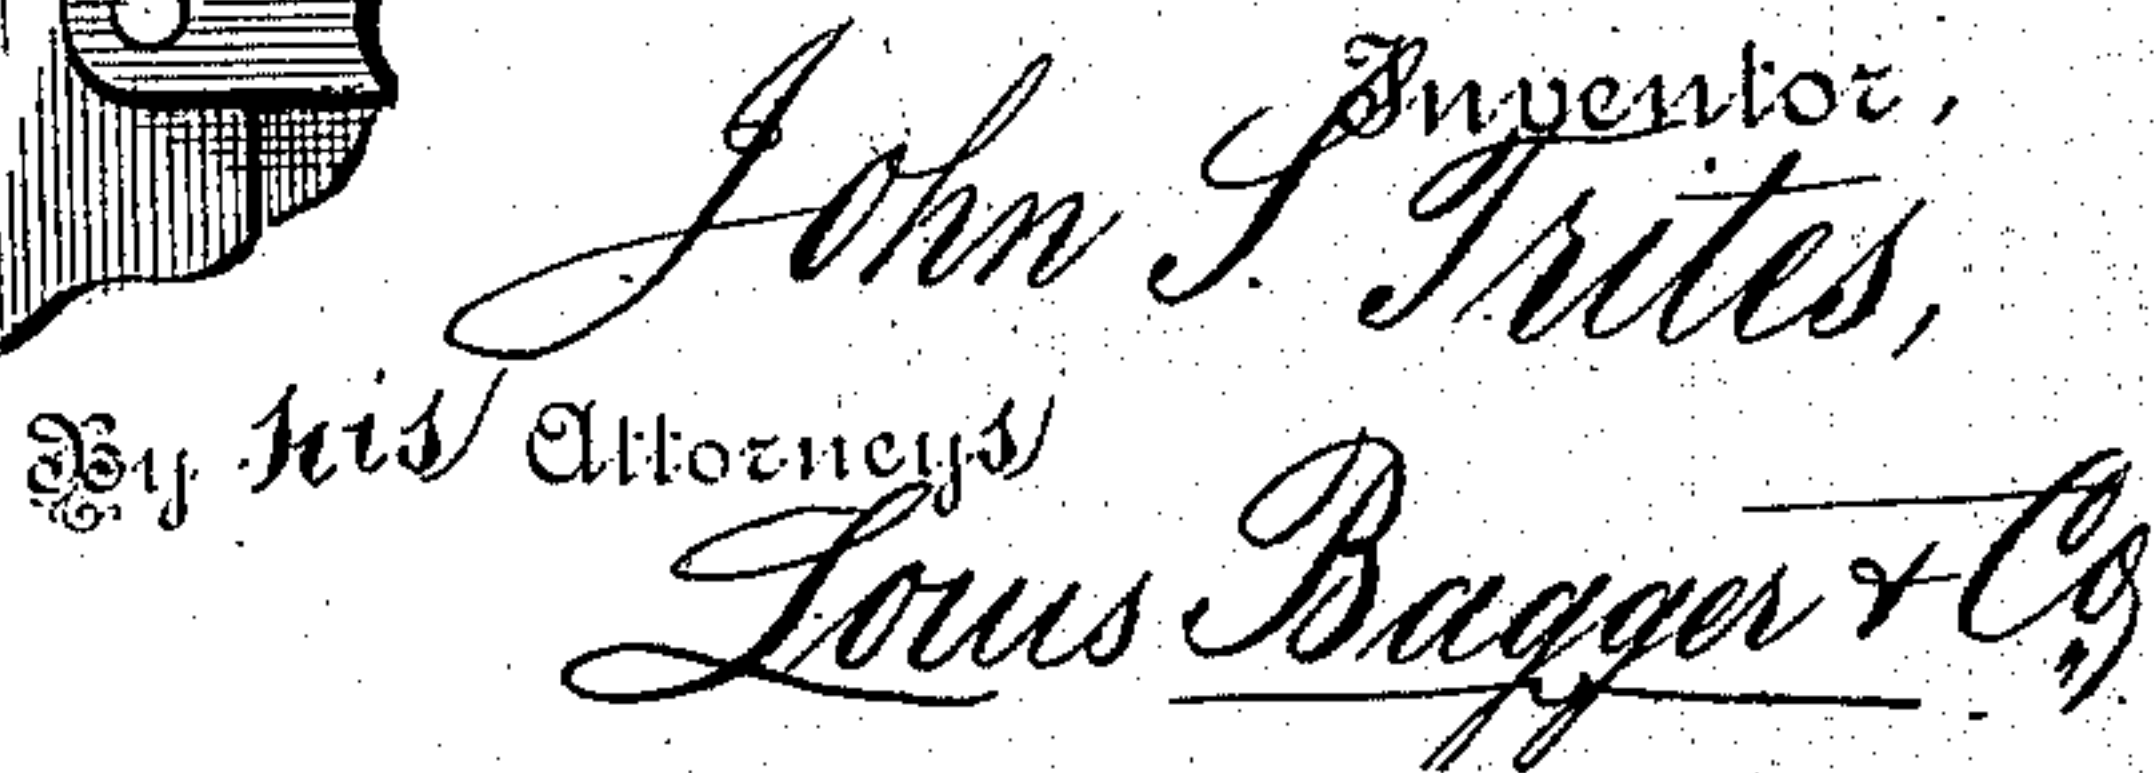 Inventor,
John S. Trites,
By his Attorneys
Louis Bagger & Co,